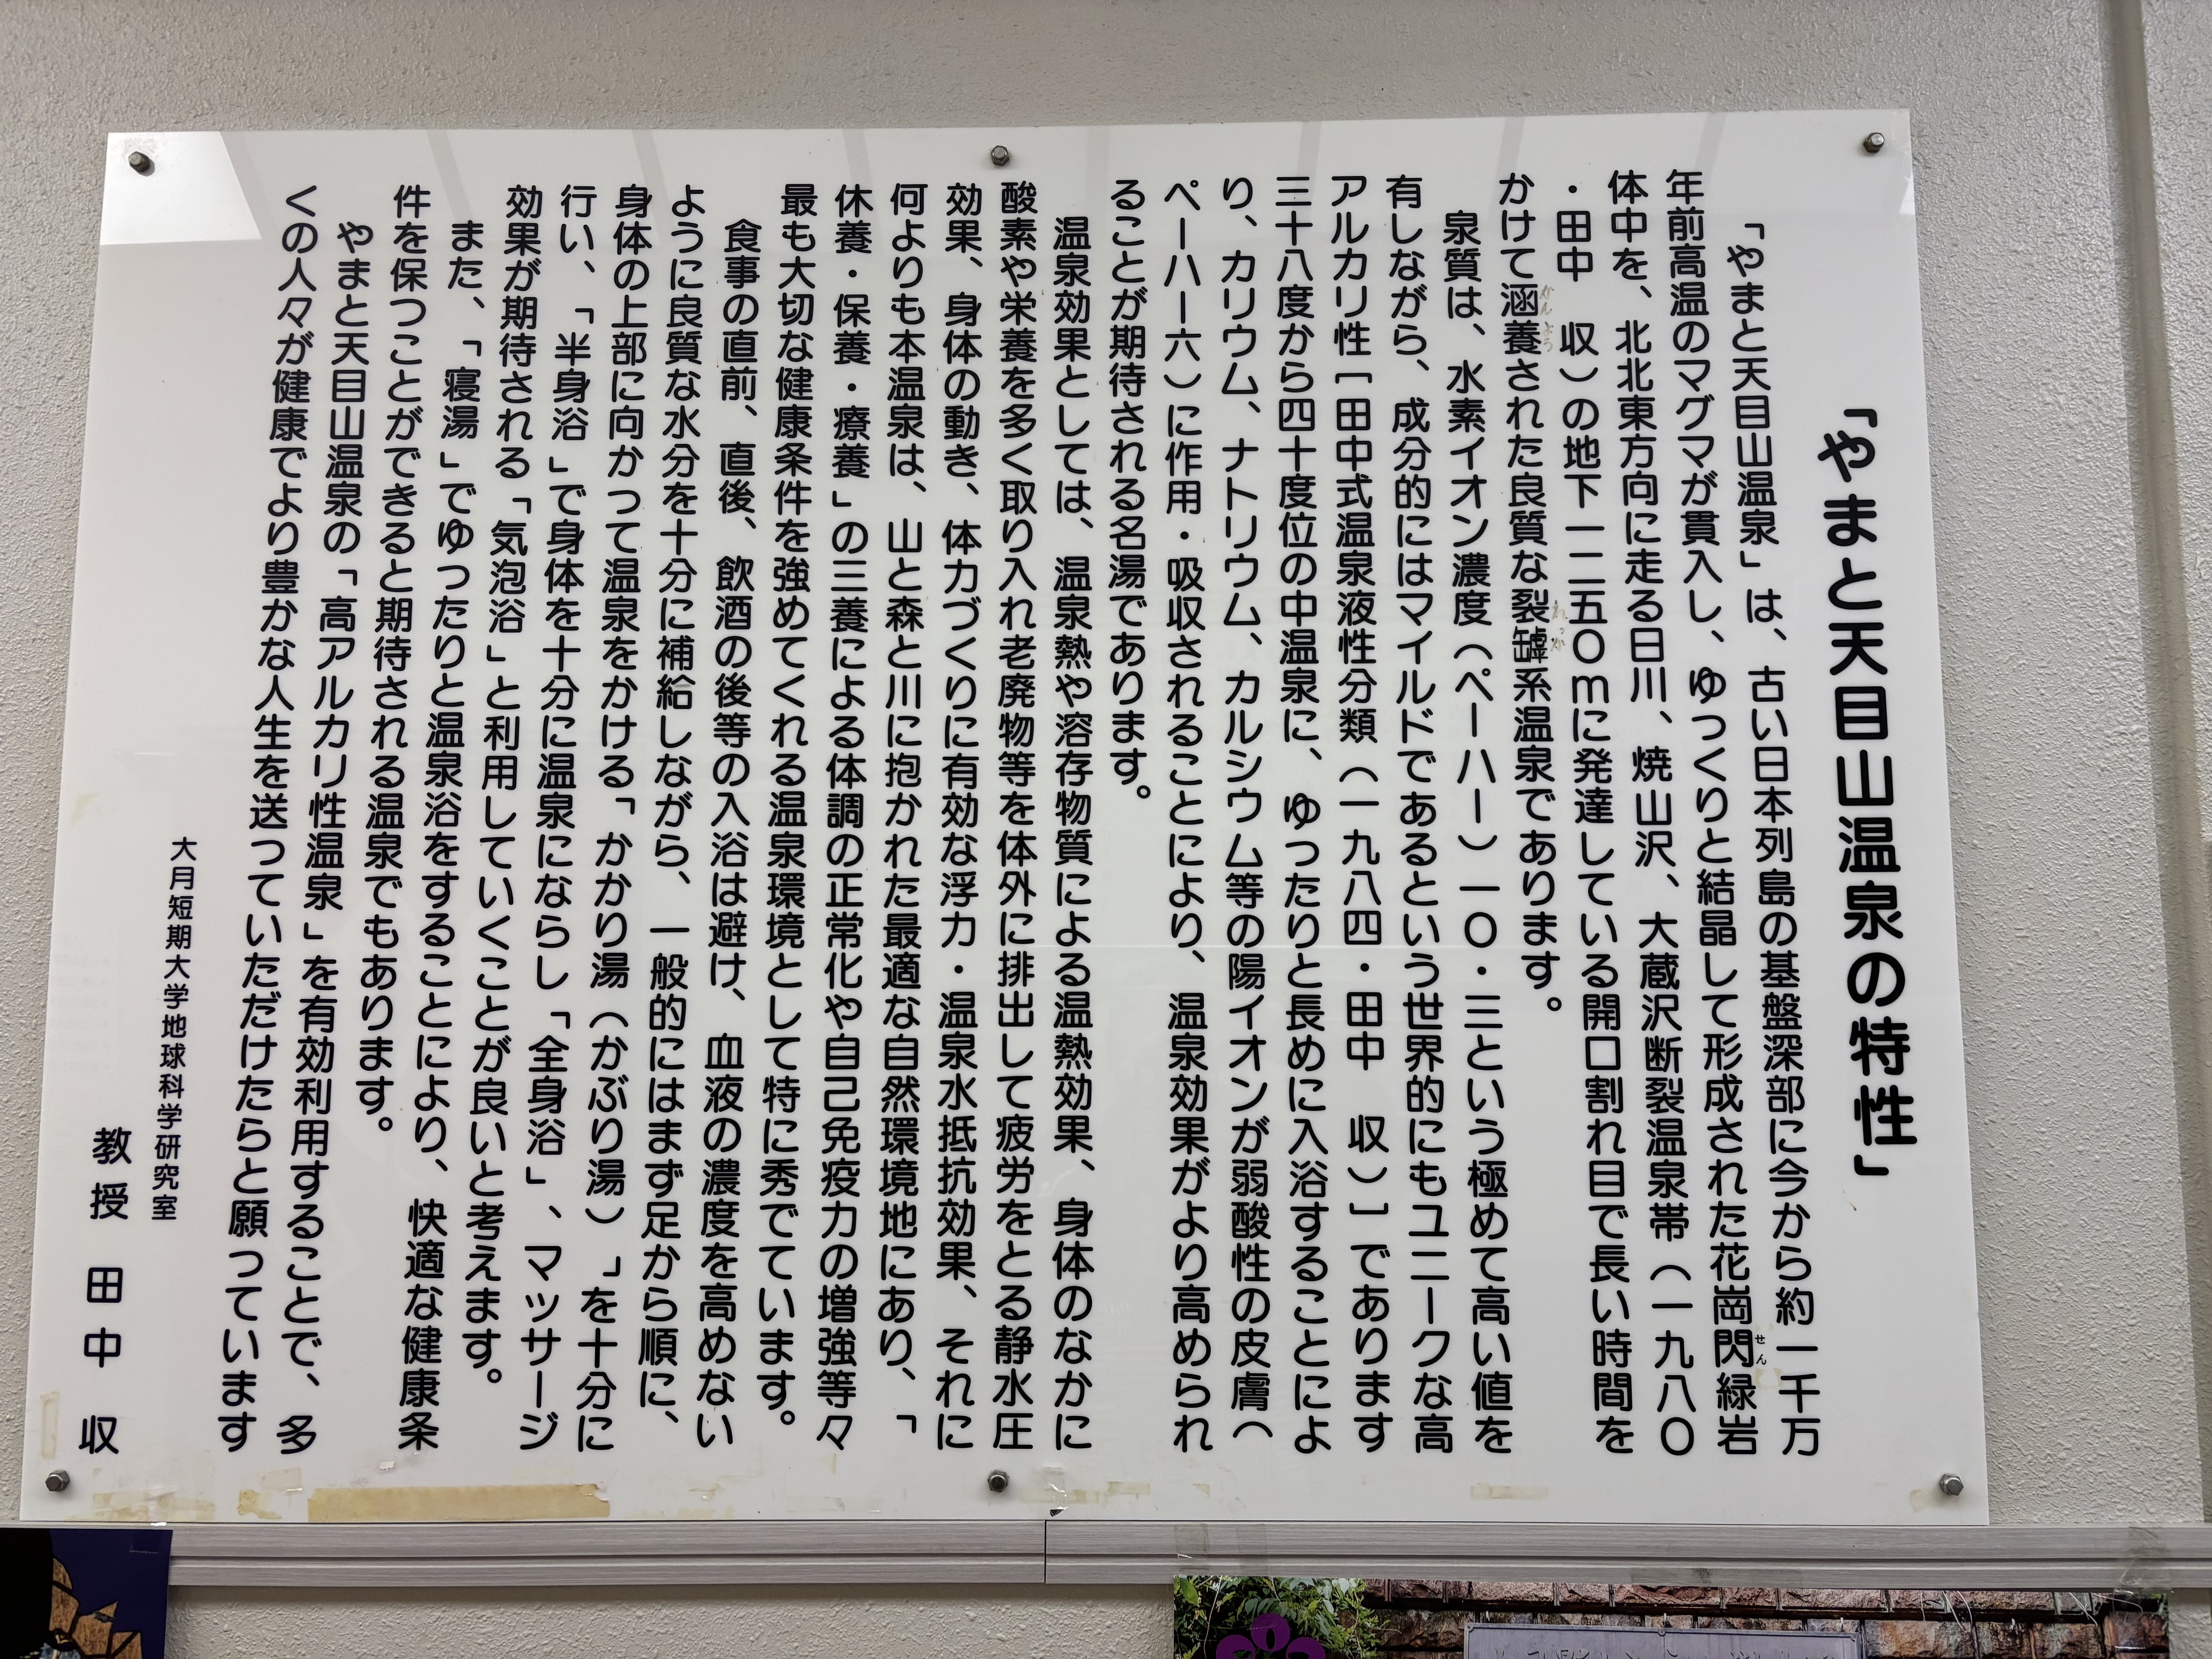 「やまと天目山温泉の特性」
「やまと天目山温泉」は、古い日本列島の基盤深部に今から約一千万
年前高温のマグマが貫入し、ゆっくりと結晶して形成された花崗閃緑岩
せん
体中を、北北東方向に走る日川、焼山沢、大蔵沢断裂温泉帯（一九八〇
・田中　収）の地下一二五〇mに発達している開口割れ目で長い時間を
かけて涵養された良質な裂罅系温泉であります。
かん よう れっ か
泉質は、水素イオン濃度（ペーハー）一〇・三という極めて高い値を
有しながら、成分的にはマイルドであるという世界的にもユニークな高
アルカリ性［田中式温泉液性分類（一九八四・田中　収）］であります
三十八度から四十度位の中温泉に、ゆったりと長めに入浴することによ
り、カリウム、ナトリウム、カルシウム等の陽イオンが弱酸性の皮膚（
ペーハー六）に作用・吸収されることにより、温泉効果がより高められ
ることが期待される名湯であります。
温泉効果としては、温泉熱や溶存物質による温熱効果、身体のなかに
酸素や栄養を多く取り入れ老廃物等を体外に排出して疲労をとる静水圧
効果、身体の動き、体力づくりに有効な浮力・温泉水抵抗効果、それに
何よりも本温泉は、山と森と川に抱かれた最適な自然環境地にあり、「
休養・保養・療養」の三養による体調の正常化や自己免疫力の増強等々
最も大切な健康条件を強めてくれる温泉環境として特に秀でています。
食事の直前、直後、飲酒の後等の入浴は避け、血液の濃度を高めない
ように良質な水分を十分に補給しながら、一般的にはまず足から順に、
身体の上部に向かって温泉をかける「かかり湯（かぶり湯）」を十分に
行い、「半身浴」で身体を十分に温泉にならし「全身浴」、マッサージ
効果が期待される「気泡浴」と利用していくことが良いと考えます。
また、「寝湯」でゆったりと温泉浴をすることにより、快適な健康条
件を保つことができると期待される温泉でもあります。
やまと天目山温泉の「高アルカリ性温泉」を有効利用することで、多
くの人々が健康でより豊かな人生を送っていただけたらと願っています
大月短期大学地球科学研究室
教授　田中　収